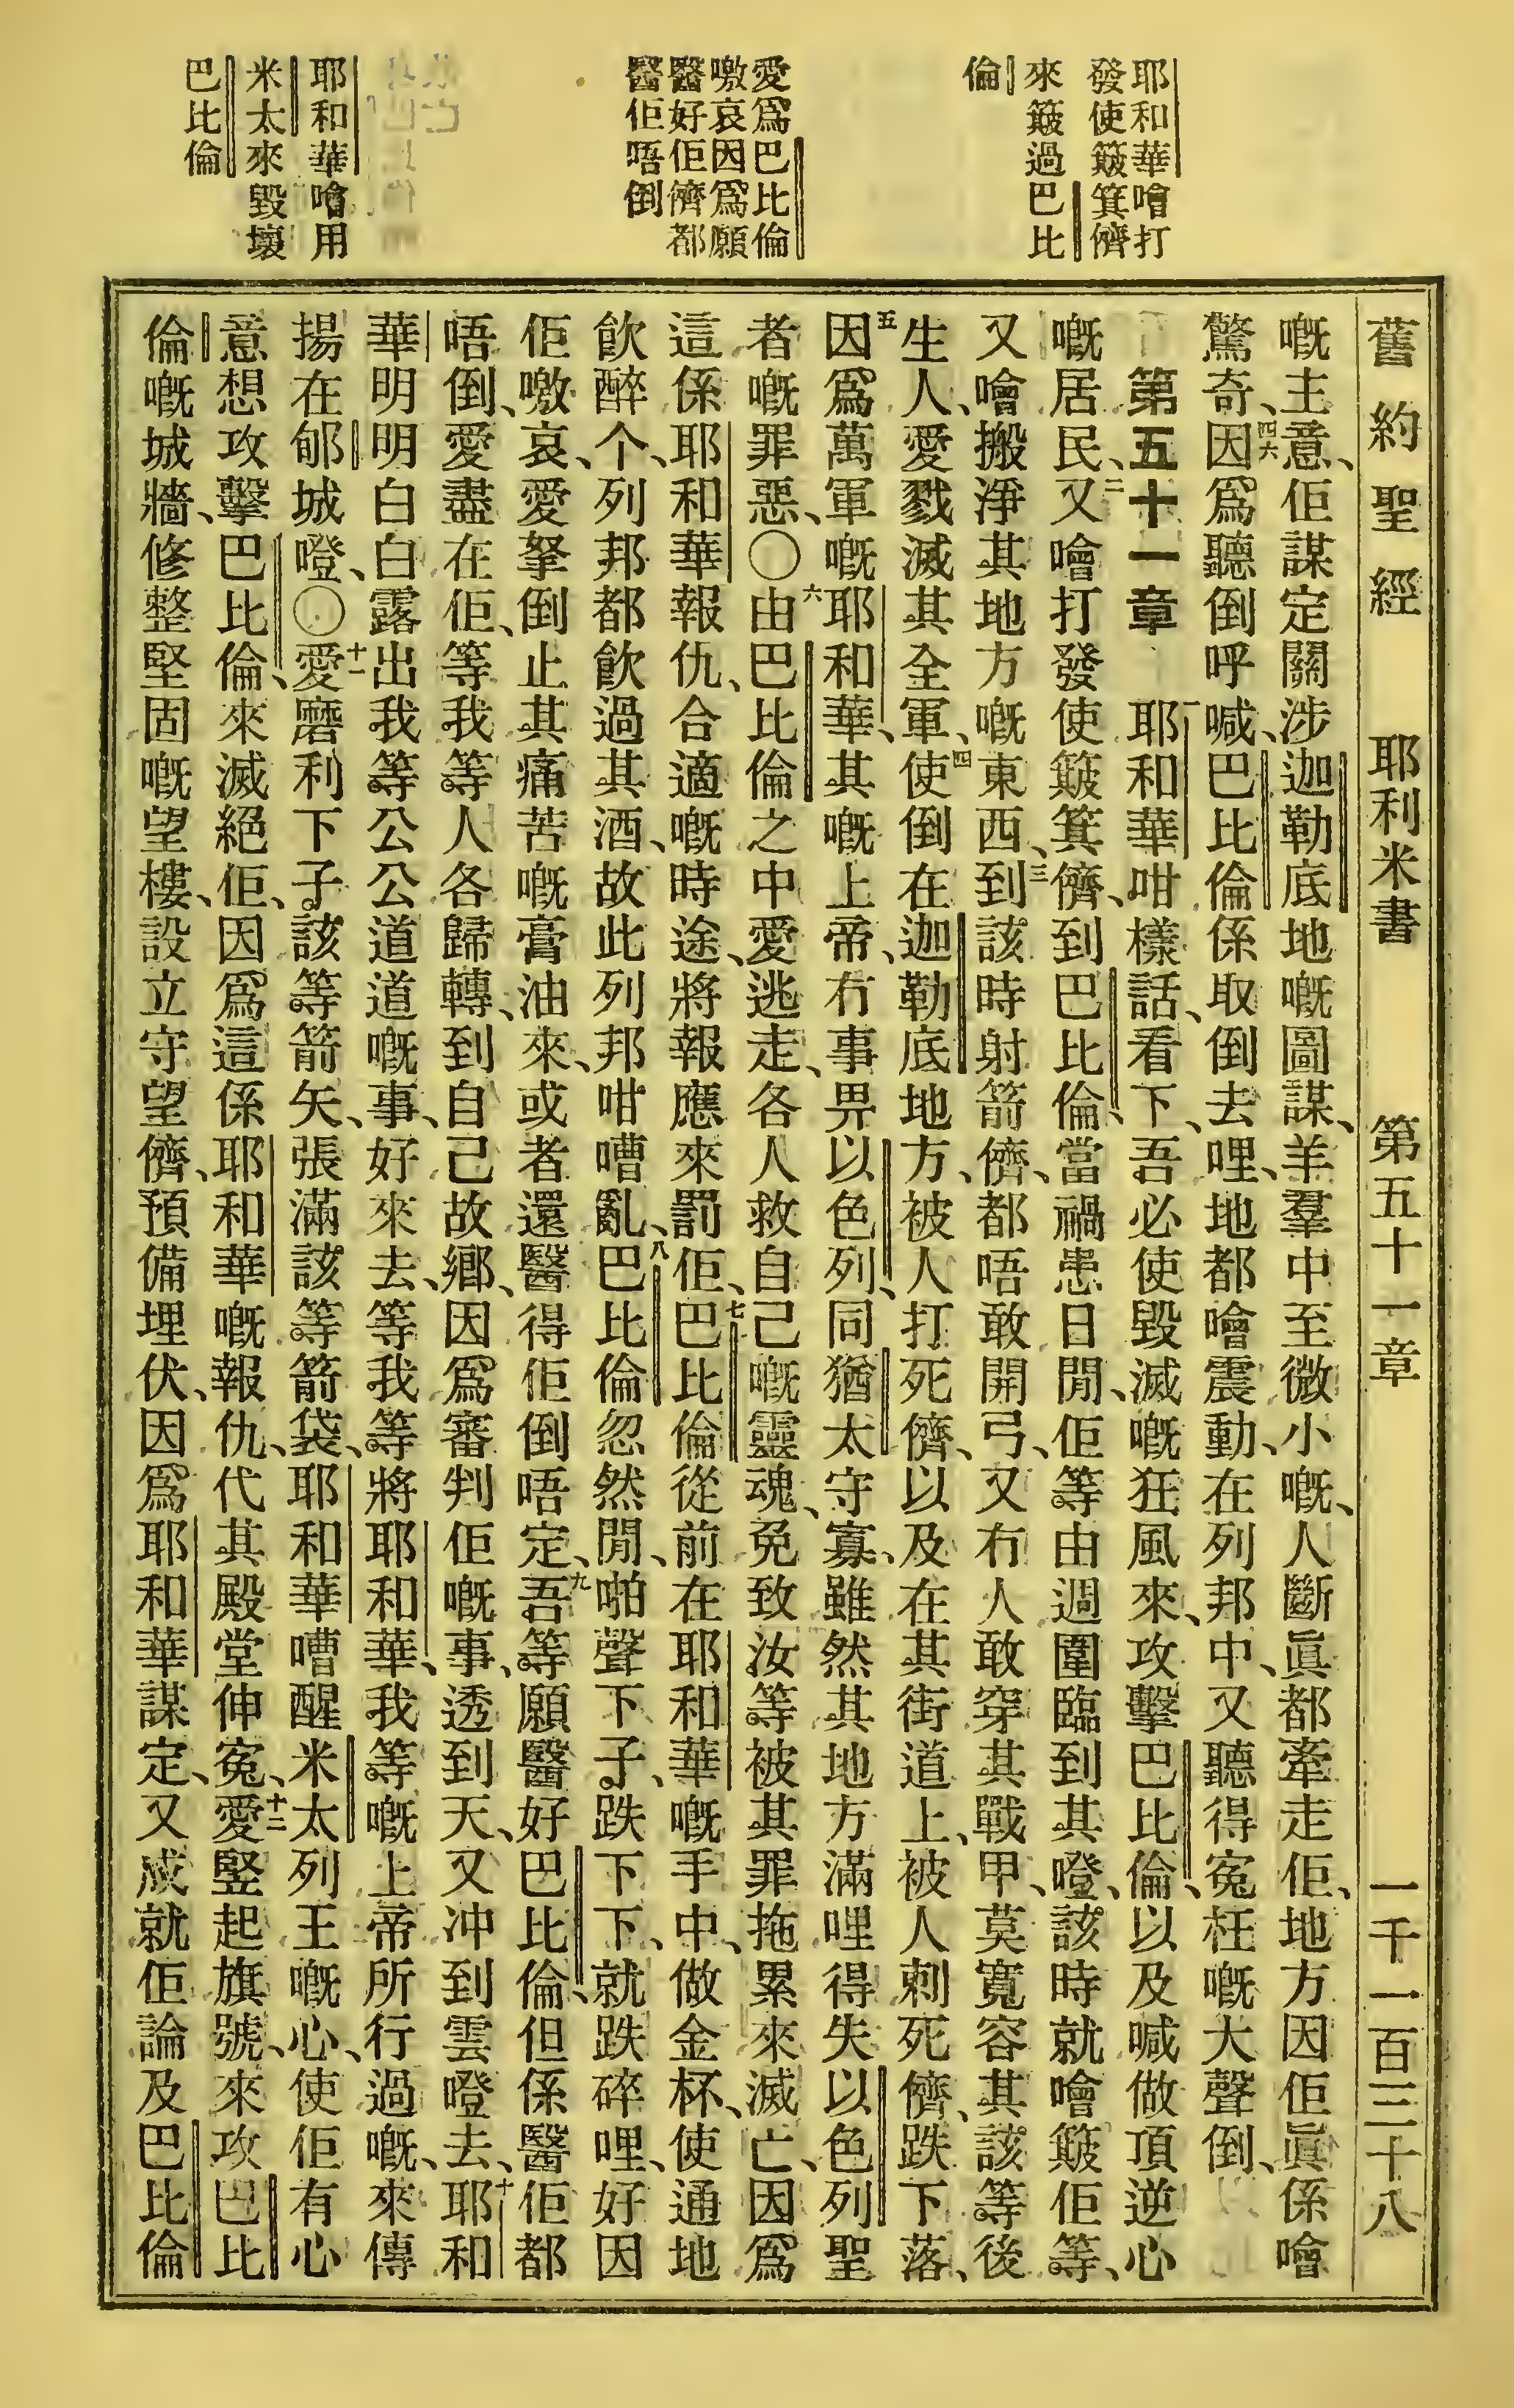 舊約聖經 耶利米書 第五十一章 一千一百三十八
耶和華噲打
發使簸箕儕
來簸過巴比
倫
愛爲巴比倫
噭哀因爲願
醫好佢儕都
醫佢唔倒
耶和華噲用
米太來毀壞
巴比倫
嘅主意、佢謀定關涉迦勒底地嘅圖謀、羊羣中至微小嘅、人斷眞都牽走佢、地方因佢眞係噲
驚奇、四六因爲聽倒呼喊、巴比倫係取倒去哩、地都噲震動、在列邦中、又聽得寃枉嘅大聲倒、
第五十一章 一耶和華咁樣話、看下、吾必使毀滅嘅狂風來、攻擊巴比倫、以及喊做頂逆心
嘅居民、二又噲打發使簸箕儕、到巴比倫、當禍患日閒、佢等由週圍臨到其噔、該時就噲簸佢等、
又噲搬淨其地方嘅東西、三到該時射箭儕、都唔敢開弓、又冇人敢穿其戰甲、莫寬容其該等後
生人、愛戮滅其全軍、四使倒在迦勒底地方、被人打死儕、以及在其街道上、被人刺死儕、跌下落、
五因爲萬軍嘅耶和華、其嘅上帝、冇事畀以色列、同猶太守寡、雖然其地方滿哩得失以色列聖
者嘅罪惡、〇六由巴比倫之中愛逃走、各人救自己嘅靈魂、免致汝等被其罪拖累來滅亡、因爲
這係耶和華報仇、合適嘅時途、將報應來罰佢、七巴比倫從前在耶和華嘅手中、做金杯、使通地
飲醉个、列邦都飲過其酒、故此列邦咁嘈亂、八巴比倫忽然閒、啪聲下子、跌下下、就跌碎哩、好因
佢噭哀、愛拏倒止其痛苦嘅膏油來、或者還醫得佢倒唔定、九吾等願醫好巴比倫、但係醫佢都
唔倒、愛盡在佢、等我等人各歸轉、到自己故鄉、因爲審判佢嘅事、透到天、又冲到雲噔去、十耶和
華明明白白露出我等公公道道嘅事、好來去、等我等將耶和華、我等嘅上帝所行過嘅、來傳
揚在郇城噔、〇十一愛磨利下子該等箭矢、張滿該等箭袋、耶和華嘈醒米太列王嘅心、使佢有心
意想攻擊巴比倫、來滅絕佢、因爲這係耶和華嘅報仇、代其殿堂伸寃、十二愛竪起旗號、來攻巴比
倫嘅城牆、修整堅固嘅望樓、設立守望儕、預備埋伏、因爲耶和華謀定、又成就佢論及巴比倫